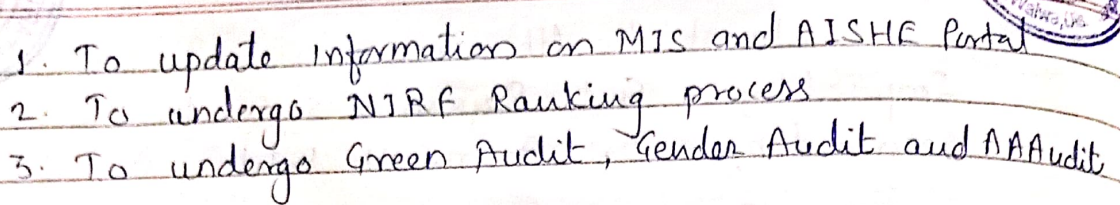 1. To update Information on MIS and AISHE Portal
2. To undergo NIRF Ranking process
3. To undergo Green Audit, Gender Audit and AAAudit